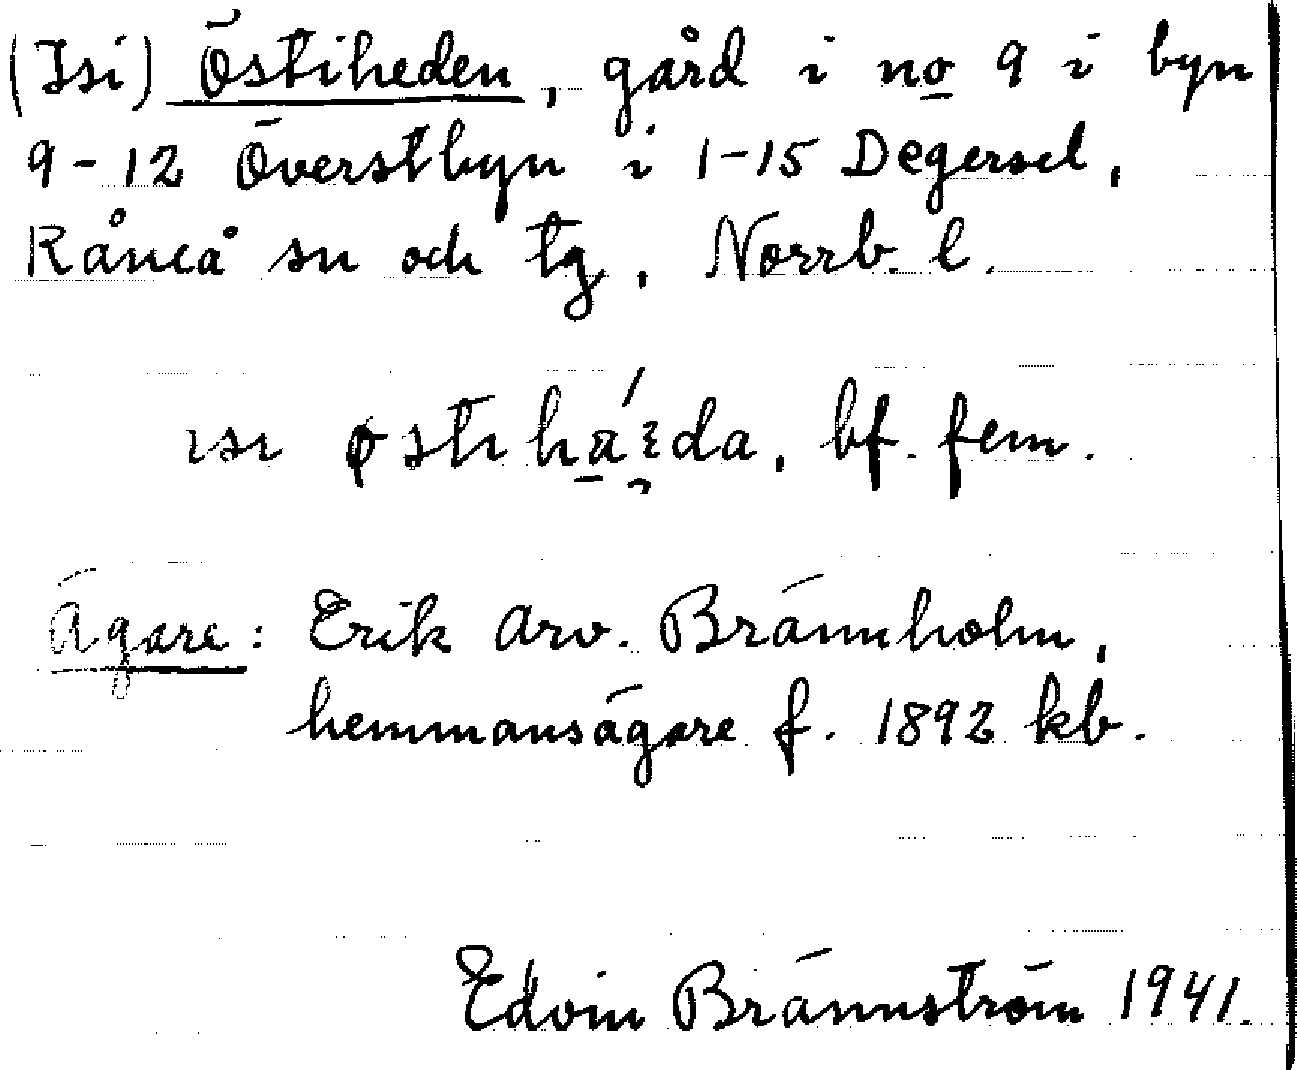 (Isi) Östiheden, gård i no 9 i byn
9-12 Överstbyn i 1-15 Degersel,
Råneå sn och tg, Norrb. l.
ısı østı da, bf. fem.
Ägare: Erik Arv. Brännholm,
hemmansägare f. 1892 kb.
Edvin Brännström 1941.